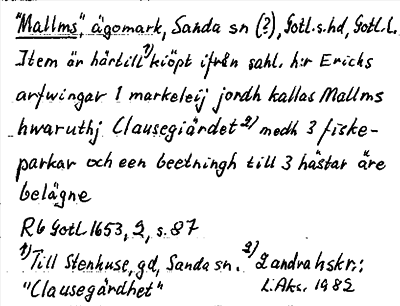 "Mallms", ägomark, Sanda sn (?), Gotl.s.hd, Gotl.l.
Item är härtill 1) kiöpt ifrån sahl. h:r Erichs
arfwingar 1 markeleij jordh kallas Mallms
hwaruthj Clausegiärdet 2) medh 3 fiske-
parkar och een beetningh till 3 hästar äre
belägne
Rb Gotl 1653, 2, s. 87
1) Till Stenhuse, gd, Sanda sn. 2) Landrahskr.:
"Clausegärdhet" L. Aks. 1982